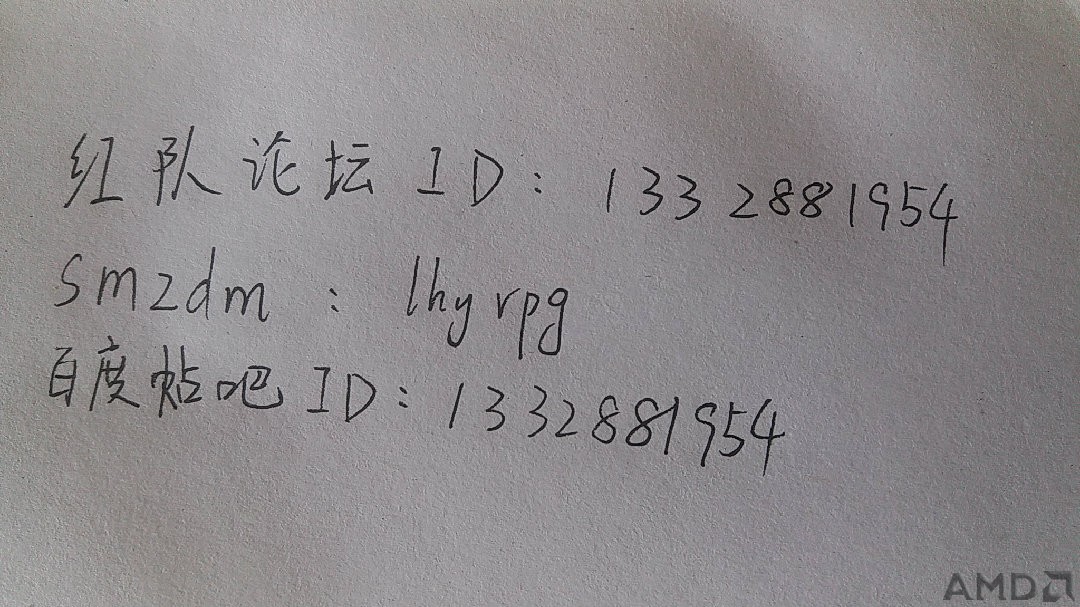 红队论坛ID：1332881954
smzdm：lhyrpg
百度贴吧ID：1332881954
AMD